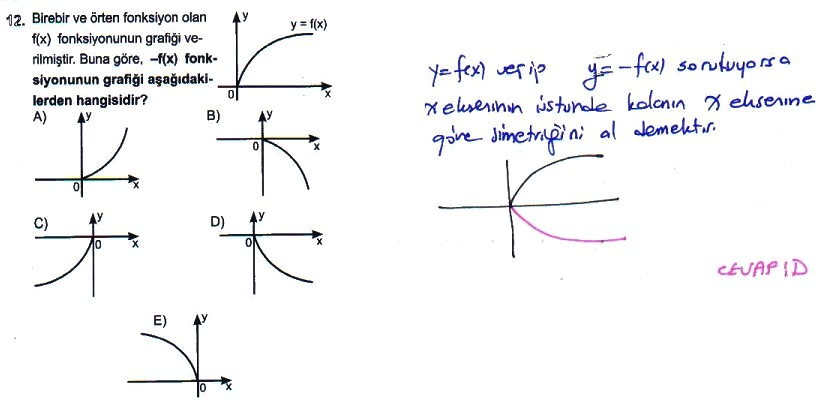 12. Birebir ve örten fonksiyon olan
f(x) fonksiyonunun grafiği ve-
rilmiştir. Buna göre, –f(x) fonk-
siyonunun grafiği aşağıdaki-
lerden hangisidir?
y
y = f(x)
0
x
A)
y
0
x
B)
y
0
x
C)
y
0
x
D)
y
0
x
E)
y
0
x
y=f(x) verip y=-f(x) soruluyorsa
x ekseninin üstünde kalanın x eksenine
göre simetriğini al demektir.
CEVAP: D